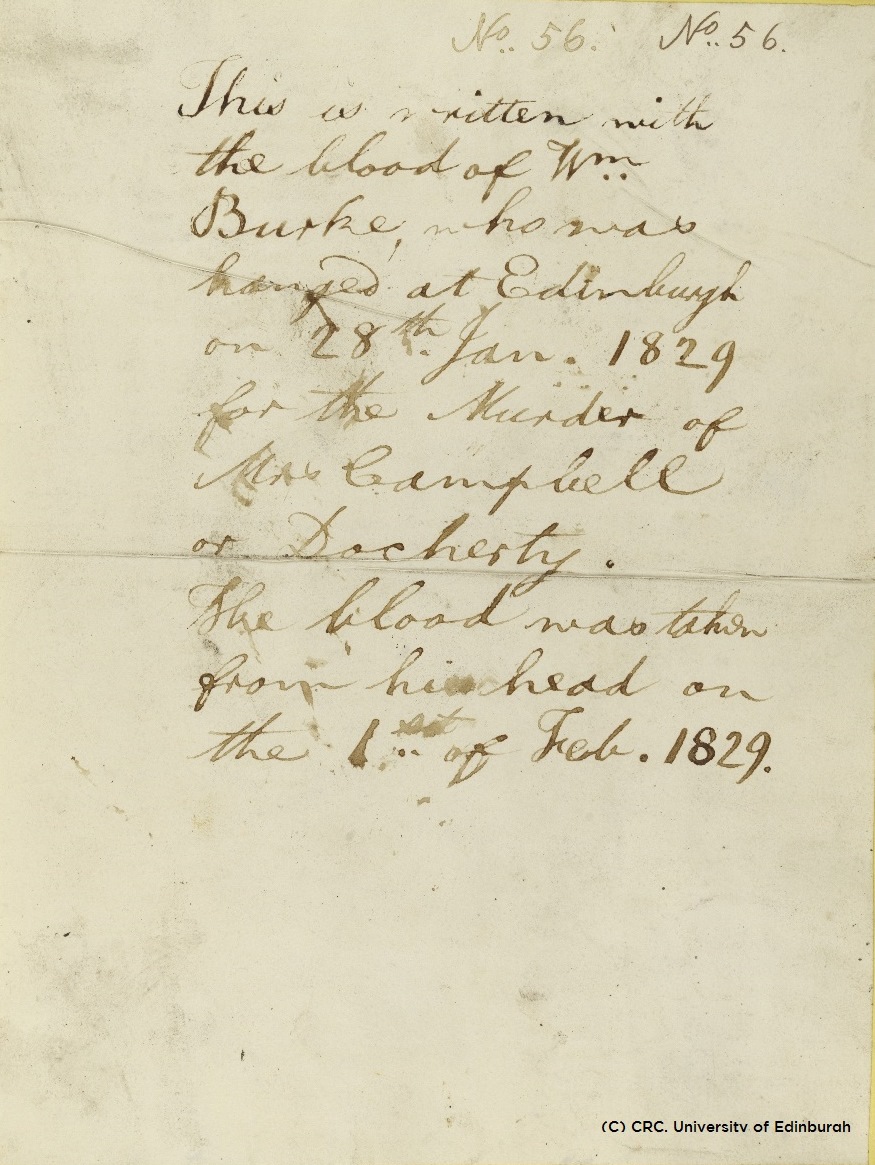 No. 56. No. 56.
This is written with
the blood of Wm.
Burke, who was
hanged at Edinburgh
on 28th. Jan. 1829
for the Murder of
Mrs Campbell
or Docherty.
The blood was taken
from his head on
the 1st. of Feb. 1829.
(C) CRC. University of Edinburgh